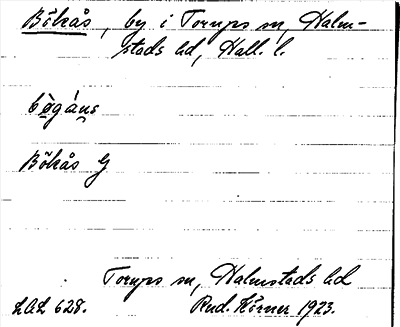 Bökås, by i Torups sn, Halm-
stads hd, Hall. l.
bögås
Bökås G
Torups sn, Halmstads hd
LAL 628. Rud. Körner 1923.